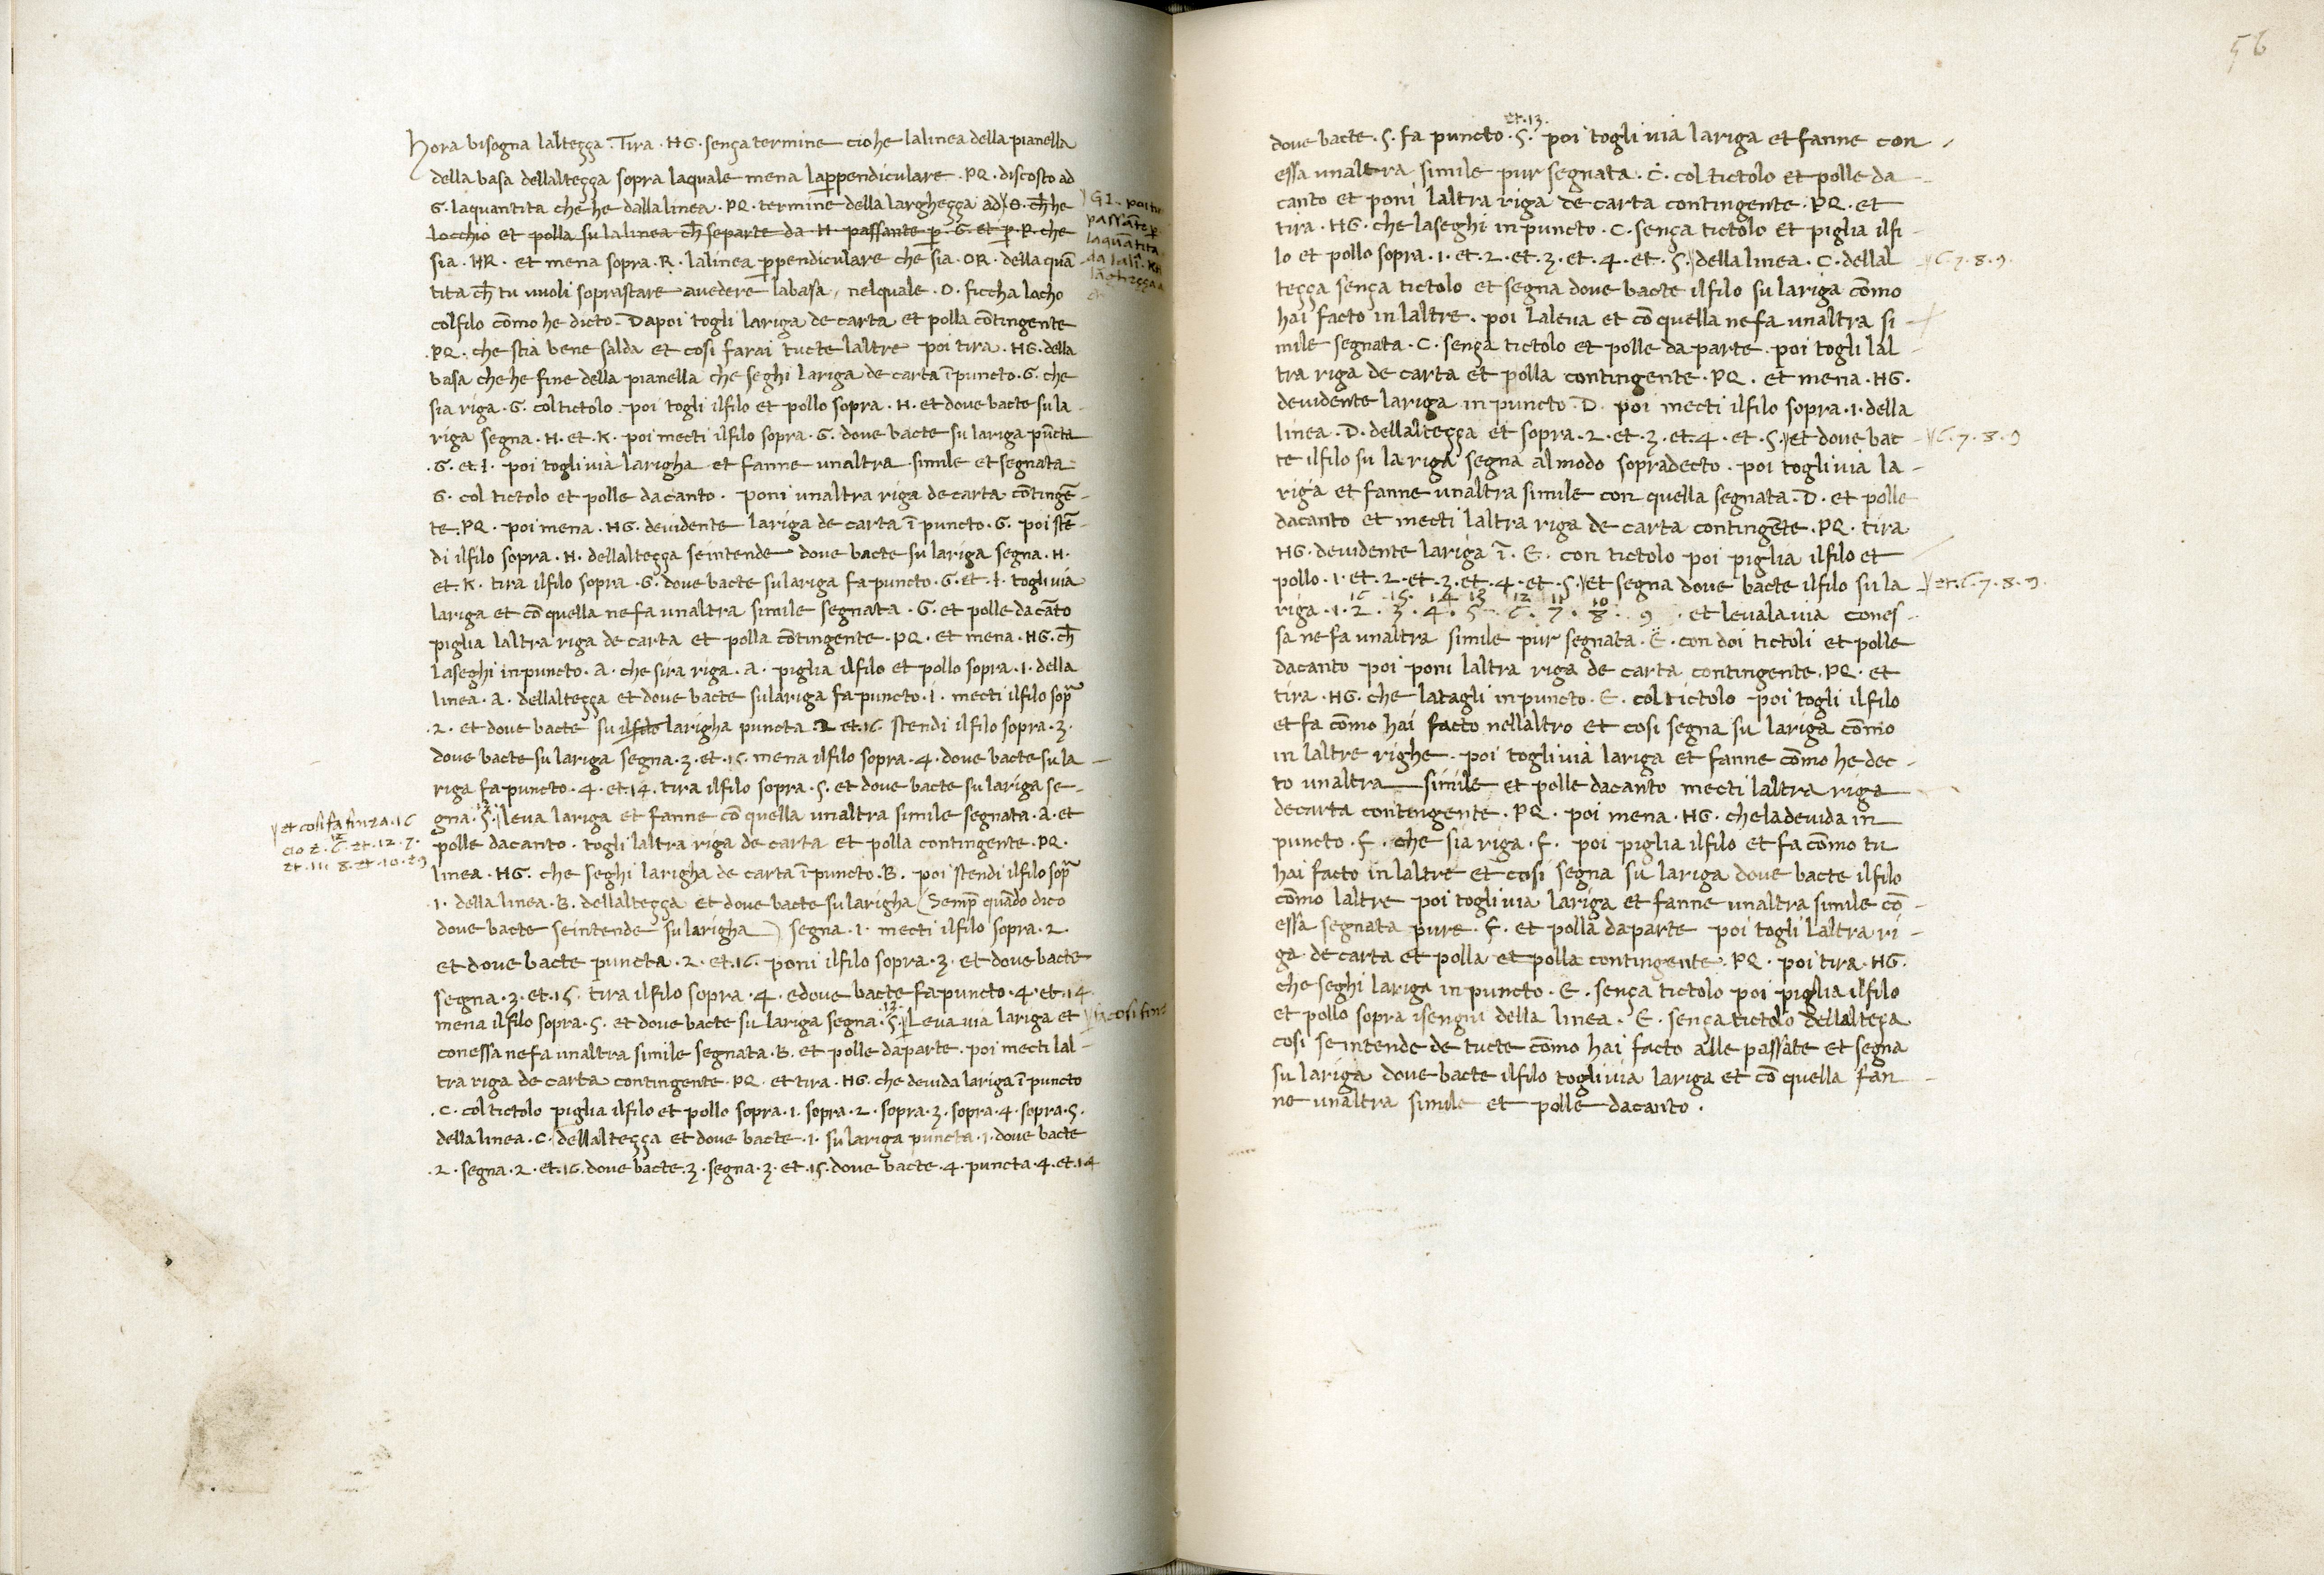 Hora bisogna lalteçça . Tira . HG . sença termine cio he lalinea della pianella
della basa dellalteçça sopra laquale mena lap̄pendiculare . PQ . discosto ad
G . laquantita che he dalla linea . PQ . termine della largheçça ad O . ch̄ he
locchio et polla su lalinea ch̄ separte da H passante p̄ G et p̄ R che
sia . HR . et mena sopra . R . lalinea p̄pendiculare che sia . OR . della quā
tita ch̄ tu vuoli soprastare avedere labasa , nelquale . O . ficcha locho
colfilo cōmo he dicto . Dapoi togli lariga de carta et polla cōtingente
. PQ . che stia bene salda et cosi farai tucte laltre poi tira . HG . della
basa che he fine della pianella che seghi lariga de carta ī puncto . G . che
sia riga . G . col tictolo . poi togli ilfilo et pollo sopra . H . et dove bacte su la
riga segna . H . et . K . poi mecti ilfilo sopra . G . dove bacte su lariga pūcta
. G . et . I . poi togli via larigha et fanne unaltra simile et segnata
G . col tictolo et polle dacanto . poni unaltra riga decarta cōtingē-
te . PQ . poi mena . HG . devidente lariga de carta ī puncto . G . poi stē-
di ilfilo sopra . H . dellalteçça seintende dove bacte su lariga segna . H .
et . K . tira ilfilo sopra . G . dove bacte sulariga fa puncto . G . et . I . togli via
lariga et cō quella nefa unaltra simile segnata . G . et polle dacāto
piglia laltra riga de carta et polla cōtingente . PQ . et mena . HG . ch̄
laseghi inpuncto . A . che sira riga . A . piglia ilfilo et pollo sopra . 1 . della
linea . A . dellalteçça et dove bacte sulariga fa puncto . 1 . mecti ilfilo sop̄
. 2 . et dove bacte su ilfilo larigha puncta . 2 et . 16 . stendi ilfilo sopra . 3 .
dove bacte su lariga segna . 3 . et . 15 . mena ilfilo sopra . 4 . dove bacte su la
riga fa puncto . 4 . et 14 . tira ilfilo sopra . 5 . et dove bacte su lariga se-
gna . 5 . 13 leva lariga et fanne cō quella unaltra simile segnata . A . et
et cosi fa fin ta . 16
polle dacanto . togli laltra riga de carta et polla contingente . PQ .
cio e . 6 . et . 12 . 7 .
et . 11 8 . et . 10 . et 9
linea . HG . che seghi larigha de carta ī puncto . B . poi stendi ilfilo sop̄
1 . della linea . B . dellalteçça et dove bacte su larigha (Semp̄ quādo dico
dove bacte seintende su larigha) segna . 1 . mecti ilfilo sopra . 2
et dove bacte puncta . 2 . et . 16 . poni ilfilo sopra . 3 . et dove bacte
segna . 3 . et . 15 . tira ilfilo sopra . 4 . edove bacte fa puncto . 4 . et . 14
mena ilfilo sopra . 5 . et dove bacte su lariga segna . 5 . 13 Leva via lariga et
conessa nefa unaltra simile segnata . B . et polle daparte . poi mecti lal-
tra riga de carta contingente . PQ . et tira . HG . che devida lariga ī puncto
. C . col tictolo piglia ilfilo et pollo sopra . 1 . sopra . 2 . sopra . 3 . sopra . 4 . sopra . 5 .
della linea . C . dellalteçça et dove bacte . 1 . su lariga puncta . 1 . dove bacte
. 2 . segna . 2 . et . 16 . dove bacte . 3 . segna . 3 . et . 15 . dove bacte . 4 . puncta . 4 . et . 14
56
et . 13 .
dove bacte . 5 . fa puncto . 5 . poi togli via lariga et fanne con
essa unaltra simile pur segnata . C . col tictolo et polle da
canto et poni laltra riga de carta contingente . PQ . et
tira . HG . che laseghi inpuncto . C . sença tictolo et piglia ilfi
lo et pollo sopra . 1 . et . 2 . et . 3 . et . 4 . et . 5 . della linea . C . dellal
6 . 7 . 8 . 9 .
teçça sença tictolo et segna dove bacte ilfilo su lariga cōmo
hai facto in laltre . poi Laleva et cō quella nefa unaltra si
mile segnata . C . sença tictolo et polle da parte . poi togli lal
tra riga de carta et polla contingente . PQ . et mena . HG .
devidente lariga in puncto . D . poi mecti ilfilo sopra . 1 . della
linea . D . dellalteçça et sopra . 2 . et . 3 . et . 4 . et . 5 . et dove bac
6 . 7 . 8 . 9
te ilfilo su la riga segna almodo sopradecto . poi togli via la-
riga et fanne unaltra simile con quella segnata . D . et polle
dacanto et mecti laltra riga de carta contingēte . PQ . tira
HG . devidente lariga ī . E . con tictolo poi piglia ilfilo et
pollo . 1 . et . 2 . et . 3 . et . 4 . et . 5 . et segna dove bacte ilfilo su la
et . 6 . 7 . 8 . 9 .
16 15 14 13 12 11 10
riga . 1 . 2 . 3 . 4 . 5 . 6 . 7 . 8 . 9 . et levala via cones-
sa nefa unaltra simile pur segnata . E . con doi tictoli et polle
dacanto poi poni laltra riga de carta contingente . PQ . et
tira . HG . che latagli inpuncto . E . col tictolo poi togli ilfilo
et fa cōmo hai facto nellaltro et cosi segna su lariga cōmo
in laltre righe . poi togli via lariga et fanne cōmo he dec-
to unaltra simile et polle dacanto mecti laltra riga
decarta contingente . PQ . poi mena . HG . che ladevida in
puncto . F . che sia riga . F . poi piglia ilfilo et fa cōmo tu
hai facto in laltre et cosi segna su lariga dove bacte ilfilo
cōmo laltre poi togli via lariga et fanne unaltra simile cō-
essa segnata pure . F . et polla daparte poi togli Laltra ri-
ga de carta et polla et polla contingente . PQ . poi tira . HG .
che seghi lariga in puncto . E . sença tictolo poi piglia ilfilo
et pollo sopra isengni della linea . E . sença tictolo dellalteça
cosi se intende de tucte cōmo hai facto alle passate et segna
su lariga dove bacte ilfilo togli via lariga et cō quella fan
ne unaltra simile et polle dacanto .